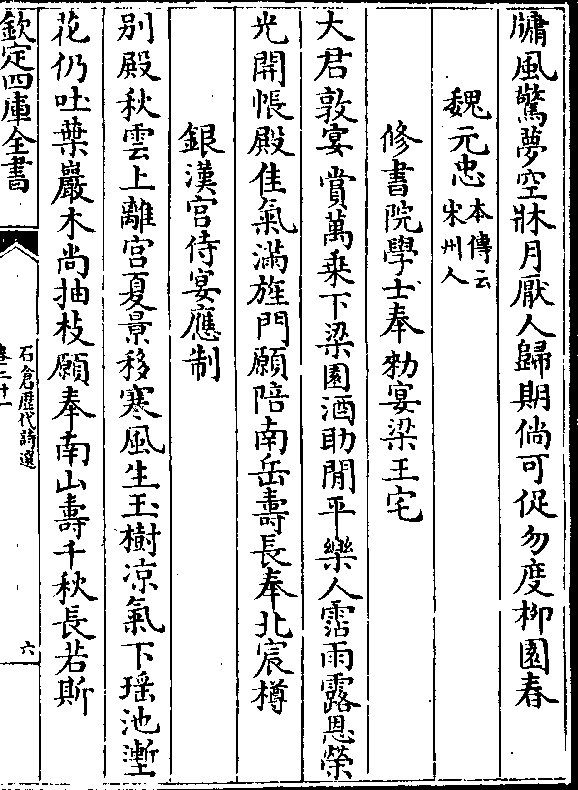 牖風驚夢空牀月厭人歸期倘可促勿度栁園春
魏元忠本傳云宋州人
修書院學士奉勑宴梁王宅
大君敦宴賞萬乗下梁園酒助閒平樂人霑雨露恩榮
光開帳殿佳氣滿旌門願陪南岳壽長奉北宸樽
銀漢宫侍宴應制
别殿秋雲上離宫夏景移寒風生玉樹凉氣下瑶池壍
花仍吐葉巖木尚抽枝願奉南山壽千秋長若斯
欽定四庫全書
石倉歴代詩選
卷二十一
六